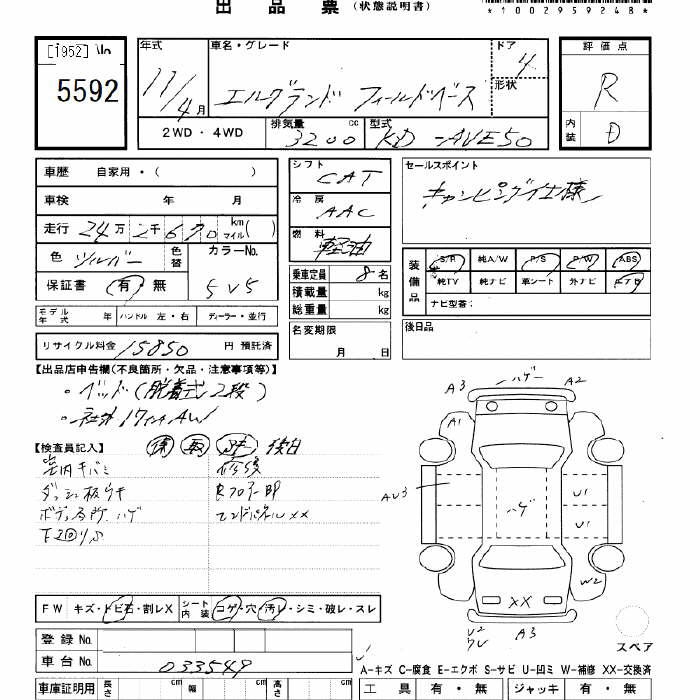 出品票（状態説明書）
*1002959248*
[1952] No
5592
年式 11/4月
車名・グレード エルグランド フィールドベース
ドア 4
形状
評価点 R
内装 D
2WD・4WD
排気量 3200 cc
型式 KD-AVE50
車歴 自家用・( )
車検 年 月
走行 24万2千670 km マイル( )
色 シルバー 色替
カラーNo. 5V5
保証書 有・無
モデル年式 年 ハンドル 左・右 ディーラー・並行
リサイクル料金 15850 円 預託済
シフト CAT
冷房 AAC
燃料 軽油
乗車定員 8名
積載量 kg
総重量 kg
名変期限 月 日
セールスポイント
キャンピング仕様
装備品
S/R 純A/W P/S P/W ABS
純TV 純ナビ 革シート 外ナビ エアB
ナビ型番:
後日品
【出品店申告欄(不良箇所・欠品・注意事項等)】
・ベッド(脱着式2段)
・社外17インチAW
【検査員記入】
後日
室内キバミ
修復
ダッシュ板ウキ
ボディ各所ハゲ
エンドパネルXX
下回りサビ
ハゲ
A3
A2
A1
AV3
ハゲ
U1
U1
W2
XX
A3
FW キズ・トビ石・割レX
シート内装 コゲ・穴・汚レ・シミ・破レ・スレ
登録No.
車台No. 033549
車庫証明用 長さ cm 幅 cm 高さ cm
スペア
A-キズ C-腐食 E-エクボ S-サビ U-凹ミ W-補修 XX-交換済
工具 有・無 ジャッキ 有・無